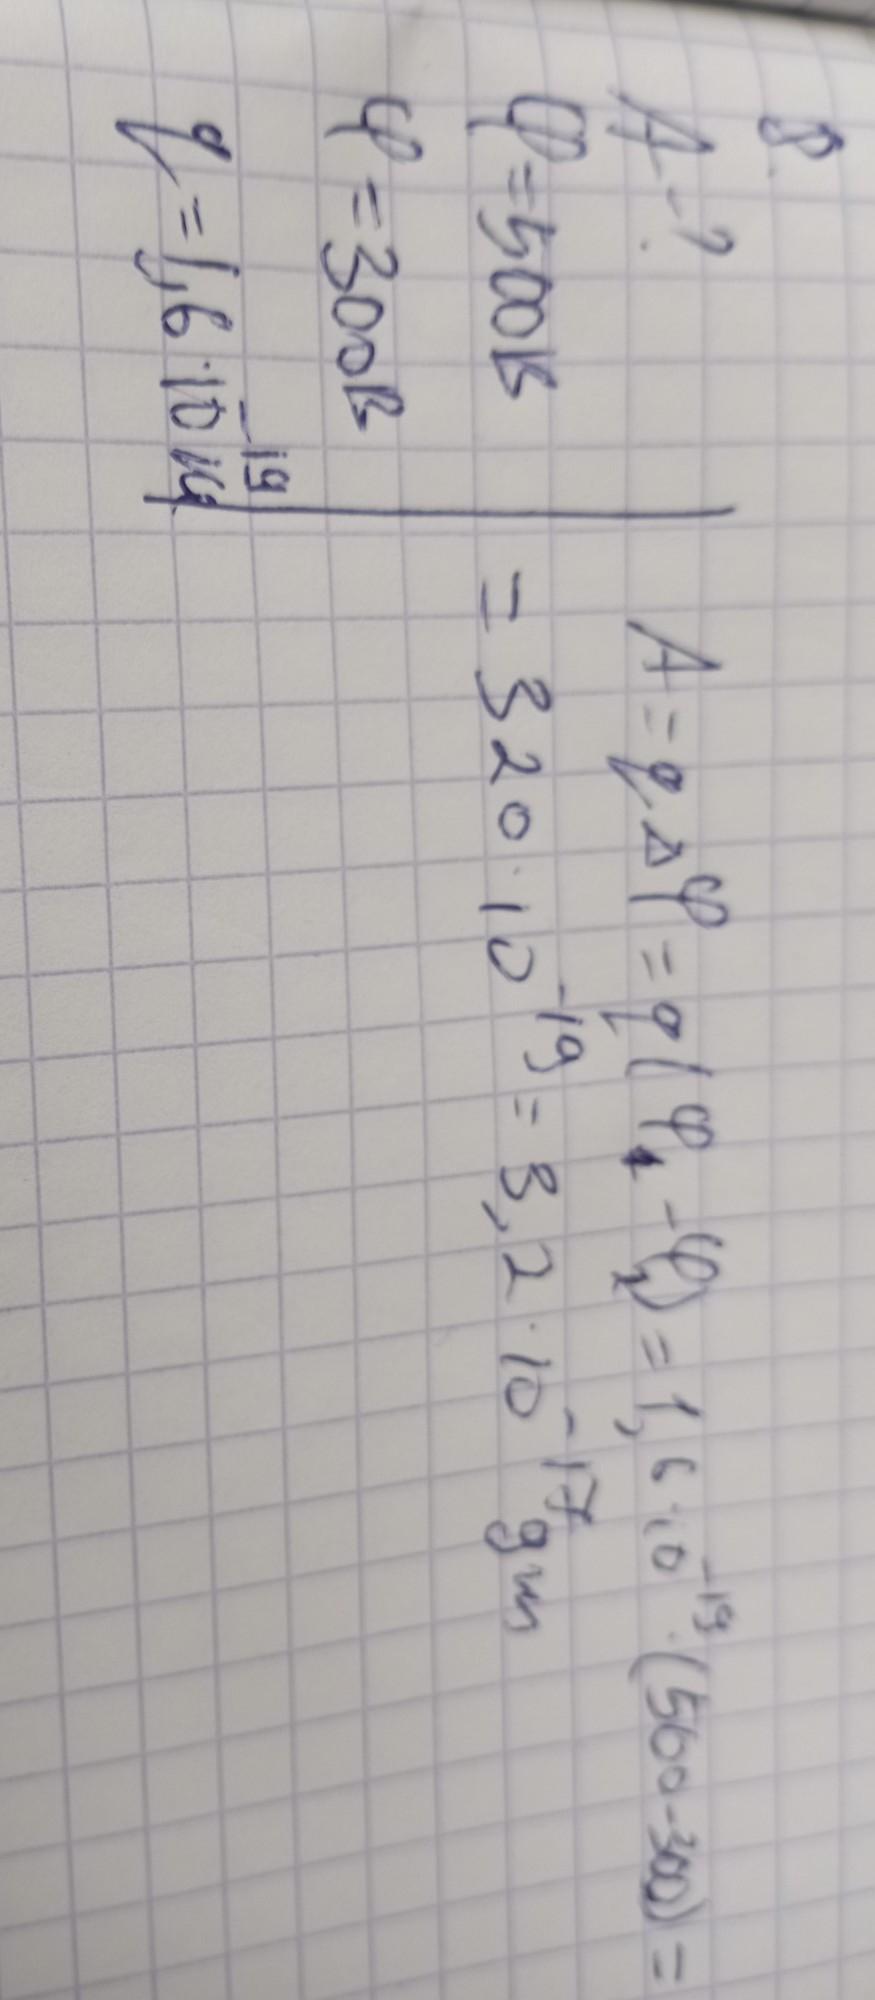 8.
A - ?
φ = 500 В
φ = 300 В
q = 1,6 · 10⁻¹⁹ Кл
A = q Δφ = q (φ₁ - φ₂) = 1,6 · 10⁻¹⁹ · (500 - 300) =
= 320 · 10⁻¹⁹ = 3,2 · 10⁻¹⁷ Дж